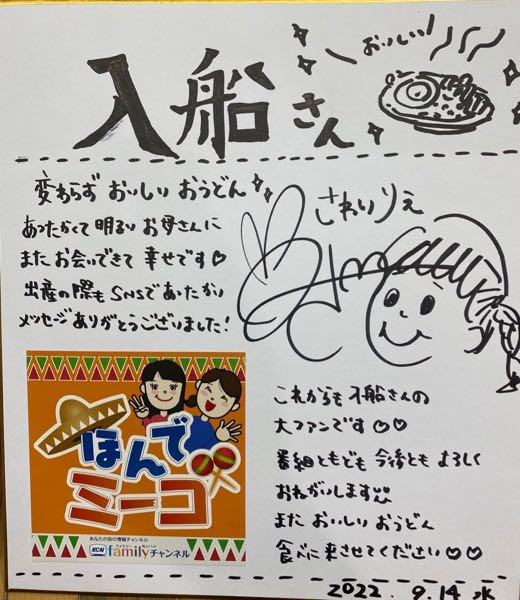 入船さん
おいしい
変わらず おいしい おうどん
あったかくて 明るい お母さんに
また お会いできて 幸せです♡
出産の際も SNSで あったかい
メッセージ ありがとうございました!
さわい りえ
ほんで
ミーコ
あなたの街の情報チャンネル
KCN familyチャンネル
これからも 入船さんの
大ファンです♡♡
番組ともども 今後とも よろしく
おねがいします
また おいしい おうどん
食べに来させてください♡♡
2022. 9.14 水